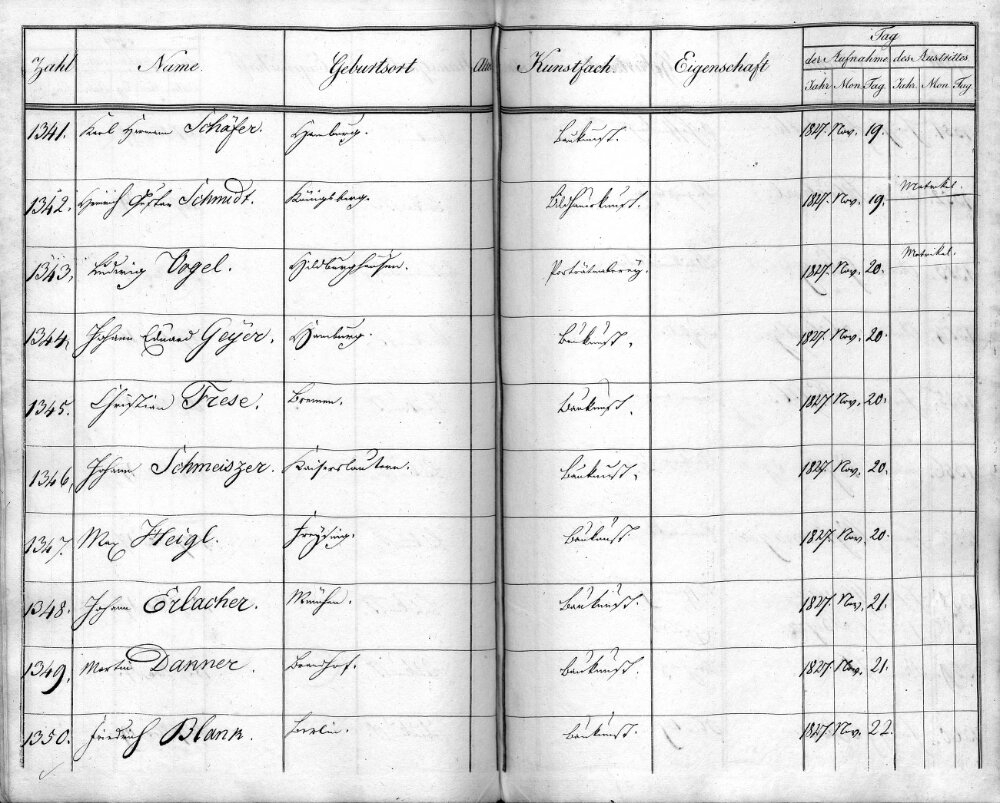 Tag
Zahl Name. Geburtsort Alter Kunstfach. Eigenschaft der Aufnahme des Austrittes
Jahr Mon. Tag. Jahr. Mon. Tag.
1341. Karl Hermann Schäfer. Hamburg. Baukunst. 1827. Nov. 19.
1342. Heinrich Schmidt. Königsberg. Bildhauerkunst. 1827. Nov. 19. Matrikel.
1343. Ludwig Vogel. Hildburghausen. Porträtmalerey. 1827. Nov. 20. Matrikel.
1344. Johann Eduard Geyer. Hamburg. Baukunst. 1827. Nov. 20.
1345. Christian Frese. Bremen. Baukunst. 1827. Nov. 20.
1346. Johann Schmeiszer. Kaiserslautern. Baukunst. 1827. Nov. 20.
1347. Max Heigl. Freysing. Baukunst. 1827. Nov. 20.
1348. Johann Erlacher. München. Baukunst. 1827. Nov. 21.
1349. Martin Danner. Baukunst. 1827. Nov. 21.
1350. Friedrich Blank. Berlin. Baukunst. 1827. Nov. 22.